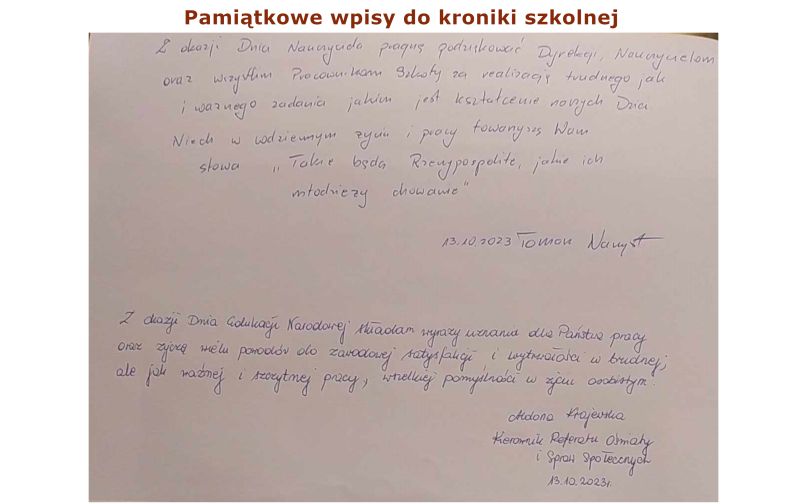 Pamiątkowe wpisy do kroniki szkolnej
Z okazji Dnia Nauczyciela pragnę podziękować Dyrekcji, Nauczycielom
oraz wszystkim Pracownikom Szkoły za realizację trudnego jak
i ważnego zadania jakim jest kształcenie naszych Dzieci
Niech w codziennym życiu i pracy towarzyszą Wam
słowa "Takie będą Rzeczypospolite, jakie ich
młodzieży chowanie"
13.10.2023 Tomasz
Z okazji Dnia Edukacji Narodowej składam wyrazy uznania dla Państwa pracy
oraz życzę wielu powodów do zawodowej satysfakcji i wytrwałości w trudnej,
ale jak ważnej i szczytnej pracy, wszelkiej pomyślności w życiu osobistym.
Aldona Krajewska
Kierownik Referatu Oświaty
i Spraw Społecznych
13.10.2023r.